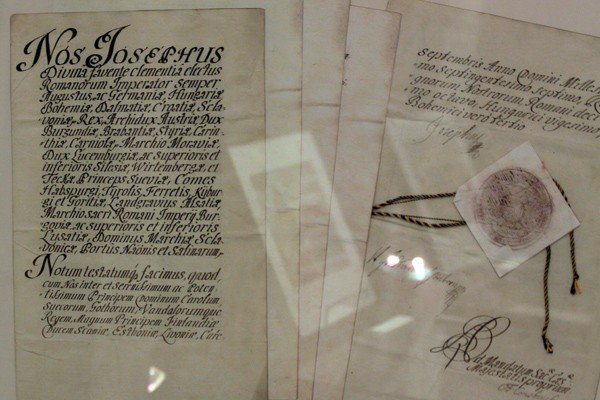 Nos Josephus
Divina favente clementia electus
Romanorum Imperator Semper
Augustus, ac Germaniæ, Hungariæ
Bohemiæ, Dalmatiæ, Croatiæ, Scla-
voniæq, Rex, Archidux Austriæ, Dux
Burgundiæ, Brabantiæ, Styriæ, Carin-
thiæ, Carniolæ, Marchio Moraviæ,
Dux Lucemburgiæ, ac Superioris et
inferioris Silesiæ, Wirtembergæ et
Teckæ, Princeps Sueviæ, Comes
Habspurgi, Tyrolis, Ferretis, Kyburg
gi et Goritiæ, Landgravius Alsatiæ
Marchio sacri Romani Imperij Bur-
goviæ, ac Superioris et inferioris
Lusatiæ, Dominus Marchiæ Scla-
vonicæ, Portus Naonis et Salinarum,
Notum testatumq facimus, quod,
cum Nos inter et Serenissimum ac Poten-
tissimum Principem Dominum Carolum
Suecorum, Gothorum, Vandalorumque
Regem, Magnum Principem Finlandiæ
Ducem Scaniæ, Esthoniæ, Livoniæ, Care-
Septembris Anno Domini Mille
mo Septingentesimo Septimo,
gnorum Nostrorum Romani deci
mo octavo, Hungarici vigesimo,
Bohemici vero tertio
Josephus
Ad Mandatum Sac. Cæs.
Majestatis proprium